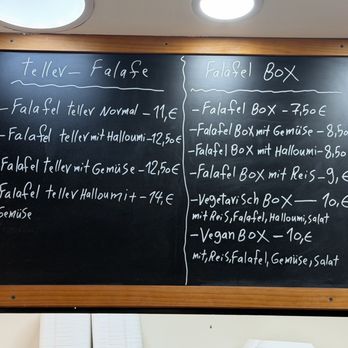 Teller - Falafe
- Falafel teller Normal - 11,€
- Falafel teller mit Halloumi - 12,50€
Falafel teller mit Gemüse - 12,50€
Falafel teller Halloumi + - 14,€
Gemüse
Falafel BOX
- Falafel BOX - 7,50€
- Falafel BOX mit Gemüse - 8,50
- Falafel BOX mit Halloumi - 8,50
- Falafel BOX mit Reis - 9,€
- Vegetarisch BOX - 10,€
mit Reis, Falafel, Halloumi, salat
- Vegan BOX - 10,€
mit, Reis, Falafel, Gemüse, Salat